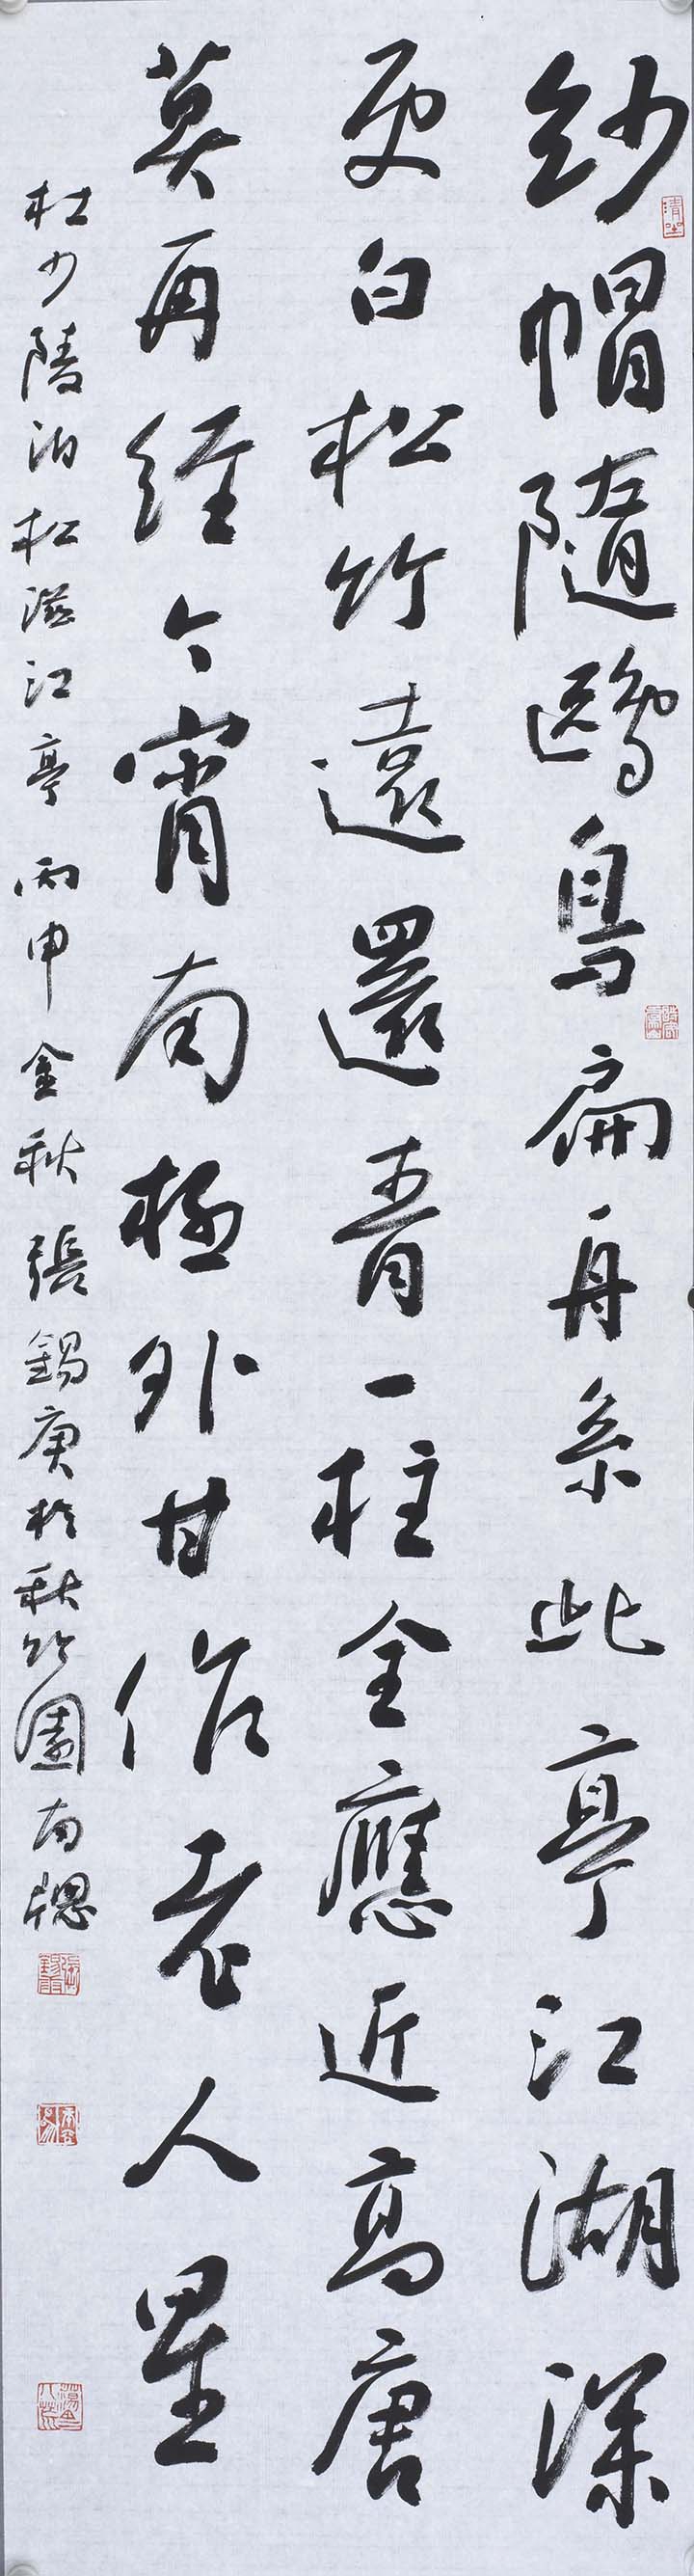 紗帽隨鷗鳥扁舟系此亭江湖深
更白松竹遠還青一柱全應近高唐
莫再經今宵南極外甘作老人星
杜少陵泊松滋江亭 丙申金秋張錫庚於秋竹園南窗